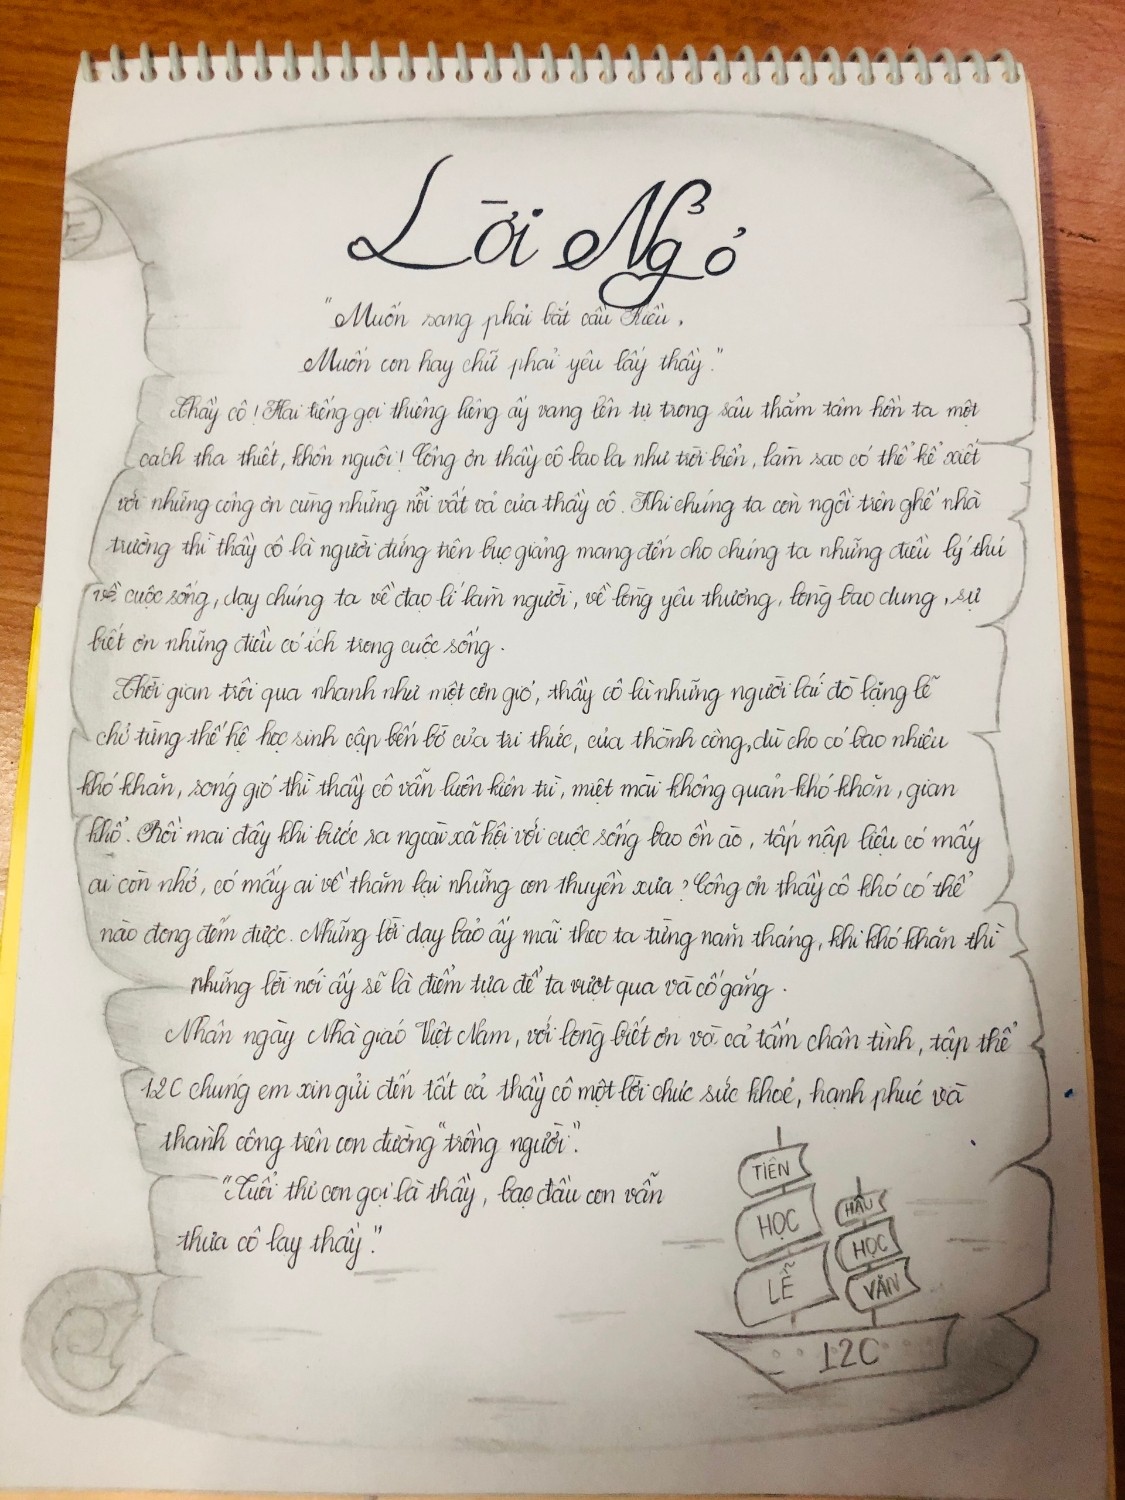 Lời Ngỏ
"Muốn sang phải bắt cầu Kiều,
Muốn con hay chữ phải yêu lấy thầy."
Thầy cô! Hai tiếng gọi thiêng liêng ấy vang lên tự trong sâu thẳm tâm hồn ta một
cách tha thiết, khôn nguôi! Công ơn thầy cô bao la như trời biển, làm sao có thể kể xiết
với những công ơn cùng những nỗi vất vả của thầy cô. Khi chúng ta còn ngồi trên ghế nhà
trường thì thầy cô là người đứng trên bục giảng mang đến cho chúng ta những điều lý thú
về cuộc sống, dạy chúng ta về đạo lí làm người, về lòng yêu thương, lòng bao dung, sự
biết ơn những điều có ích trong cuộc sống.
Thời gian trôi qua nhanh như một cơn gió, thầy cô là những người lái đò lặng lẽ
chở từng thế hệ học sinh cập bến bờ của tri thức, của thành công, dù cho có bao nhiêu
khó khăn, sóng gió thì thầy cô vẫn luôn kiên trì, miệt mài không quản khó khăn, gian
khổ. Rồi mai đây khi bước ra ngoài xã hội với cuộc sống bao ồn ào, tấp nập liệu có mấy
ai còn nhớ, có mấy ai về thăm lại những con thuyền xưa? Công ơn thầy cô khó có thể
nào đong đếm được. Những lời dạy bảo ấy mãi theo ta từng năm tháng, khi khó khăn thì
những lời nói ấy sẽ là điểm tựa để ta vượt qua và cố gắng.
Nhân ngày Nhà giáo Việt Nam, với lòng biết ơn và cả tấm chân tình, tập thể
12C chúng em xin gửi đến tất cả thầy cô một lời chúc sức khoẻ, hạnh phúc và
thành công trên con đường "trồng người".
"Tuổi thơ con gọi là thầy, bạc đầu con vẫn
thưa cô lạy thầy."
TIÊN
HỌC
LỄ
HẬU
HỌC
VĂN
12C